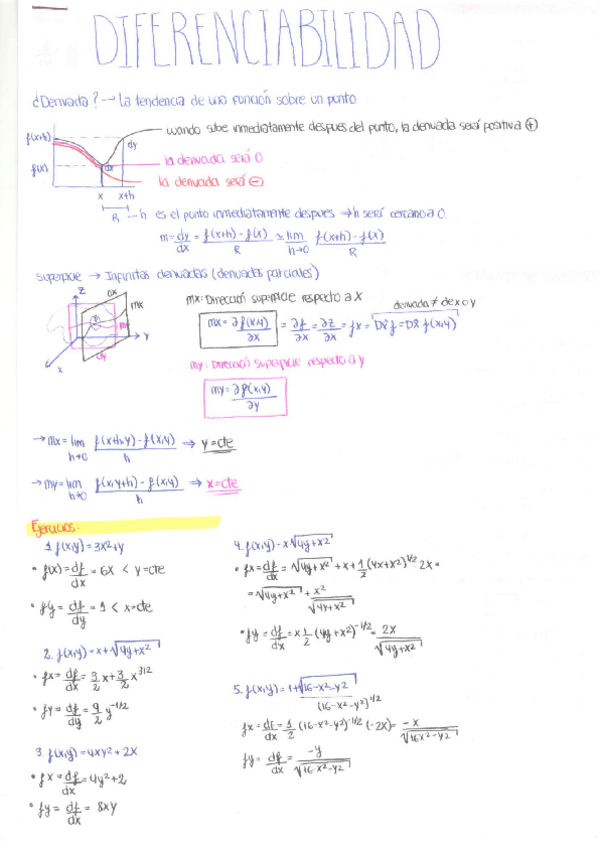 DIFERENCIABILIDAD
¿Derivada? → La tendencia de una función sobre un punto
f(x+h)
f(x)
dy
dx
x x+h
R
cuando sube inmediatamente despues del punto, la derivada será positiva ⊕
la derivada será 0
la derivada será ⊖
h es el punto inmediatamente despues → h será cercano a 0.
m = dy/dx = f(x+h) - f(x) / R ≃ lim h→0 f(x+h) - f(x) / R
Superficie → Infinitas derivadas (derivadas parciales)
Z
mx
Y
dy
x
mx: Dirección superficie respecto a X
derivada ≠ de x o y
mx = ∂f(x,y)/∂x = ∂f/∂x = ∂z/∂x = fx = Dxf = Dx f(x,y)
my: Dirección superficie respecto a y
my = ∂f(x,y)/∂y
→ mx = lim h→0 f(x+h,y) - f(x,y) / h ⇒ y = cte
→ my = lim h→0 f(x,y+h) - f(x,y) / h ⇒ x = cte
Ejercicios:
1. f(x,y) = 3x²+y
• f(x) = df/dx = 6x < y=cte
• fy = df/dy = 1 < x=cte
2. f(x,y) = x+√4y+x²
• fx = df/dx = 3/2 x + 3/2 x^3/2
• fy = df/dy = 9/2 y^-1/2
3. f(x,y) = 4xy²+2x
• fx = df/dx = 4y²+2
• fy = df/dx = 8xy
4. f(x,y) - x√4y+x²
• fx = df/dx = √4y+x² + x + 1/2 (4x+x²)^1/2 2x =
= √4y+x² + x²/√4y+x²
• fy = df/dy = x 1/2 (4y+x²)^-1/2 = 2x/√4y+x²
5. f(x,y) = 1+√16-x²-y²
(16-x²-y²)^1/2
fx = df/dx = 1/2 (16-x²-y²)^-1/2 (-2x) = -x/√16x²-y²
fy = df/dx = -y/√16-x²-y²